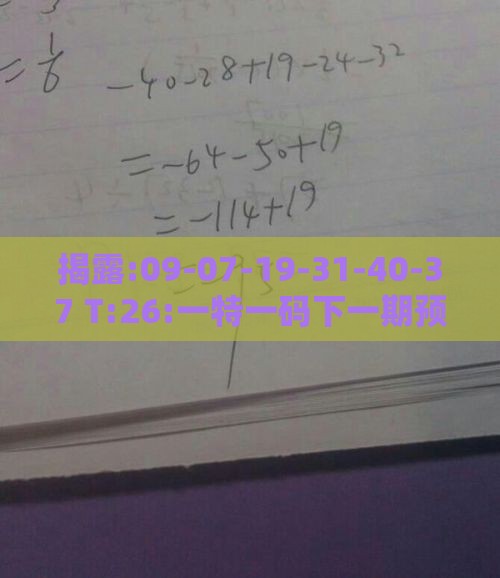 3
= 1/6
-40-28+19-24-32
=-64-50+19
=-114+19
揭露:09-07-19-31-40-3
7 T:26:一特一码下一期预